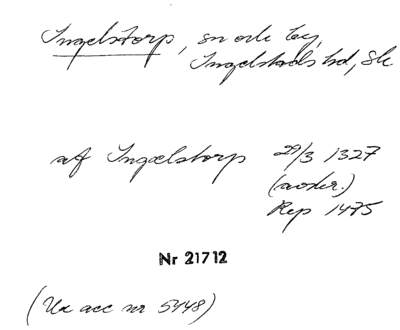 Ingelstorp, sn och by,
Ingelstads hd, Sk
af Ingælstorp 29/3 1327
(avskr.)
Rep 1475
Nr 21712
(Ur acc nr 5948)